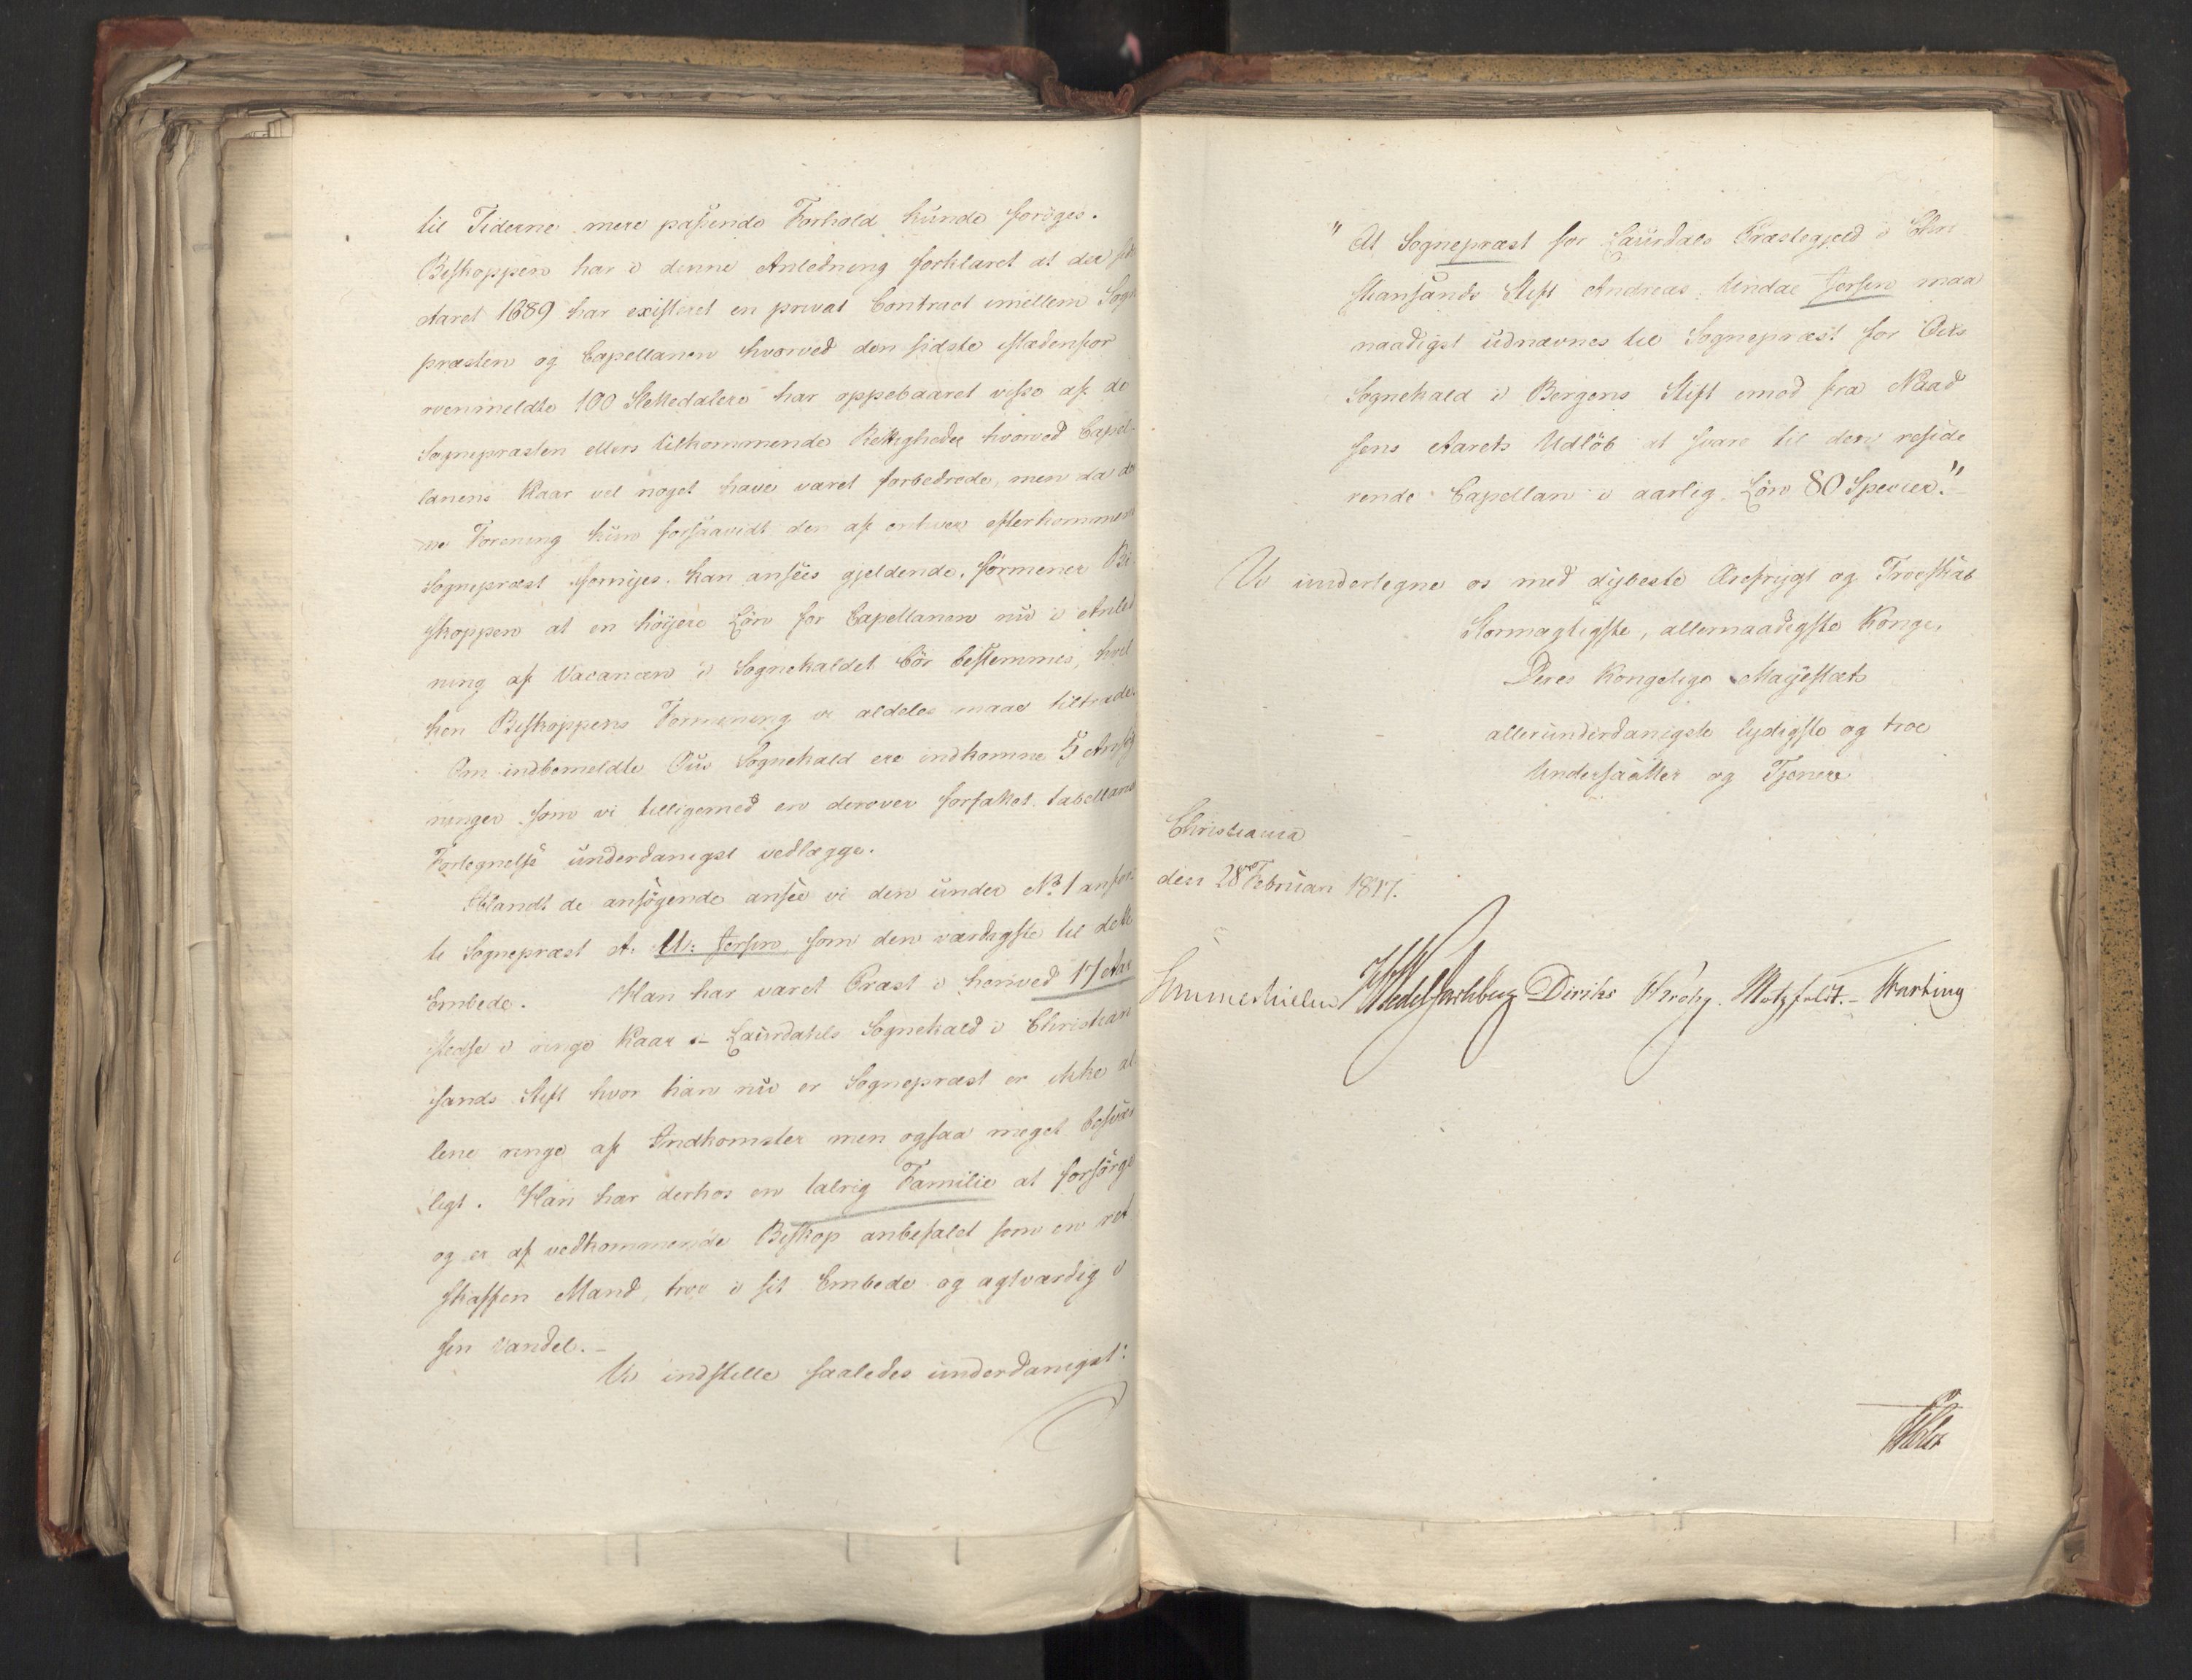 til Tiderne mere passende Forhold kunde forøges.
Biskoppen har i denne Anledning forklaret at der
Aaret 1689 har existeret en privat Contract imellem Sogne
præsten og Capellanen hvorved den sidste istædenfor
ovenmeldte 100 Slettedalere har oppebaaret visse af de
Sognepræsten ellers tilkommende Rettigheder hvorved Capel-
lanens Kaar vel noget have været forbedrede, men da den
ne Forening kun forsaavidt den af enhver efterkommende
Sognepræst fornyes kan ansees gjeldende, formener Bi-
skoppen at en høyere Løn for Capellanen nu i Anled
ning af Vacancen i Sognekaldet bør bestemmes, hvil
ken Biskoppens Formening vi aldeles maae tiltræde.
Om indbemeldte Ous Sognekald ere indkomne 5 Ansøg
ninger som vi tilligemed en derover forfattet tabellarisk
Fortegnelse underdanigst vedlægge.
Iblandt de ansøgende ansee vi den under No 1 anfør
te Sognepræst A. U: Jersin som den værdigste til dette
Embede. Han har været Præst i henved 17 Aar
stedse i ringe Kaar – Laurdahls Sognekald i Christian
sands Stift hvor han nu er Sognepræst er ikke al
lene ringe af Indkomster men ogsaa meget besvær
ligt. Han har derhos en talrig Familie at forsørge
og er af vedkommende Biskop anbefalet som en ret
skaffen Mand, troe i sit Embede og agtværdig i
sin Vandel. –
Vi indstille saaledes underdanigst:
" At Sognepræst for Laurdals Præstegjeld i Chri
stiansands Stift Andreas Undal Jersin maa
naadigst udnævnes til Sognepræst for
Sognekald i Bergens Stift imod fra Naad
sens Aarets Udløb at svare til den reside
rende Capellan i aarlig Løn 80 Specier."
Vi undertegne os med dybeste Ærefrygt og Troeskab
Stormægtigste, allernaadigste Konge,
Deres Kongelige Majestæts
allerunderdanigste lydigste og troe
Undersaatter og Tjenere
Christiania
den 28de Februari 1817.
Sommerhielm Wedel Jarlsberg Diriks Krohg. Motzfeldt. – Hartvig